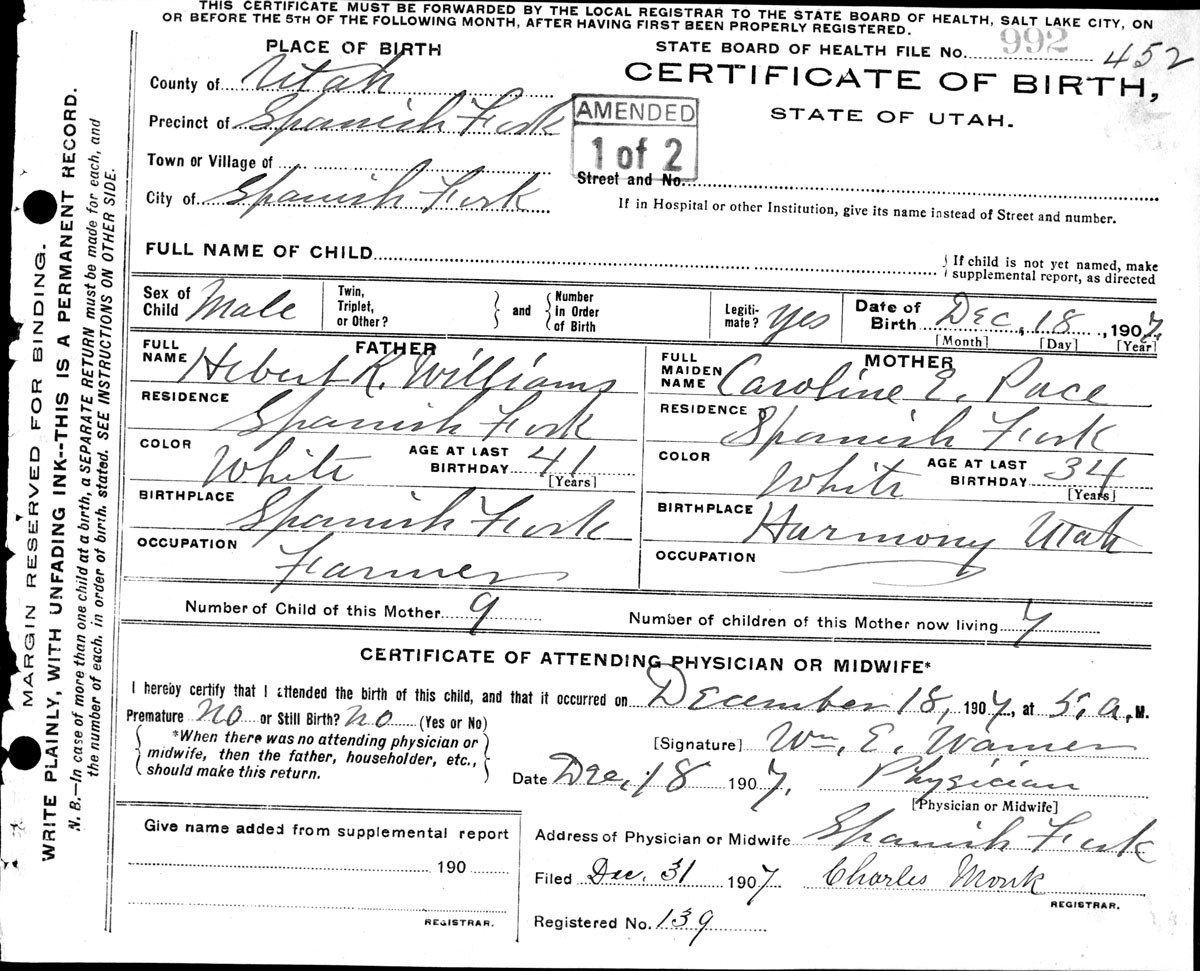 THIS CERTIFICATE MUST BE FORWARDED BY THE LOCAL REGISTRAR TO THE STATE BOARD OF HEALTH, SALT LAKE CITY, ON
OR BEFORE THE 5TH OF THE FOLLOWING MONTH, AFTER HAVING FIRST BEEN PROPERLY REGISTERED.
PLACE OF BIRTH
STATE BOARD OF HEALTH FILE No. 992 452
County of Utah
CERTIFICATE OF BIRTH,
STATE OF UTAH.
Precinct of Spanish Fork
AMENDED
1 of 2
Town or Village of
Street and No.
City of Spanish Fork
If in Hospital or other Institution, give its name instead of Street and number.
FULL NAME OF CHILD
{ If child is not yet named, make
supplemental report, as directed
Sex of Child Male
Twin, Triplet, or Other? } and { Number in Order of Birth
Legiti-mate? Yes
Date of Birth Dec, 18, 1907
[Month] [Day] [Year]
FATHER
FULL NAME Hebert K. Williams
MOTHER
FULL MAIDEN NAME Caroline E. Pace
RESIDENCE Spanish Fork
RESIDENCE Spanish Fork
COLOR White AGE AT LAST BIRTHDAY 41
[Years]
COLOR White AGE AT LAST BIRTHDAY 34
[Years]
BIRTHPLACE Spanish Fork
BIRTHPLACE Harmony Utah
OCCUPATION Farmer
OCCUPATION
Number of Child of this Mother 9
Number of children of this Mother now living 7
CERTIFICATE OF ATTENDING PHYSICIAN OR MIDWIFE*
I hereby certify that I attended the birth of this child, and that it occurred on December 18, 1907, at 5, a, M.
Premature No or Still Birth? No (Yes or No)
{ *When there was no attending physician or
midwife, then the father, householder, etc.,
should make this return. }
[Signature] Wm, E. Warner
Date Dec, 18 1907, Physician
[Physician or Midwife]
Give name added from supplemental report
190
REGISTRAR.
Address of Physician or Midwife Spanish Fork
Filed Dec. 31 1907 Charles Monk
REGISTRAR.
Registered No. 139
MARGIN RESERVED FOR BINDING.
WRITE PLAINLY, WITH UNFADING INK--THIS IS A PERMANENT RECORD.
N. B.—In case of more than one child at a birth, a SEPARATE RETURN must be made for each, and
the number of each, in order of birth, stated. SEE INSTRUCTIONS ON OTHER SIDE.